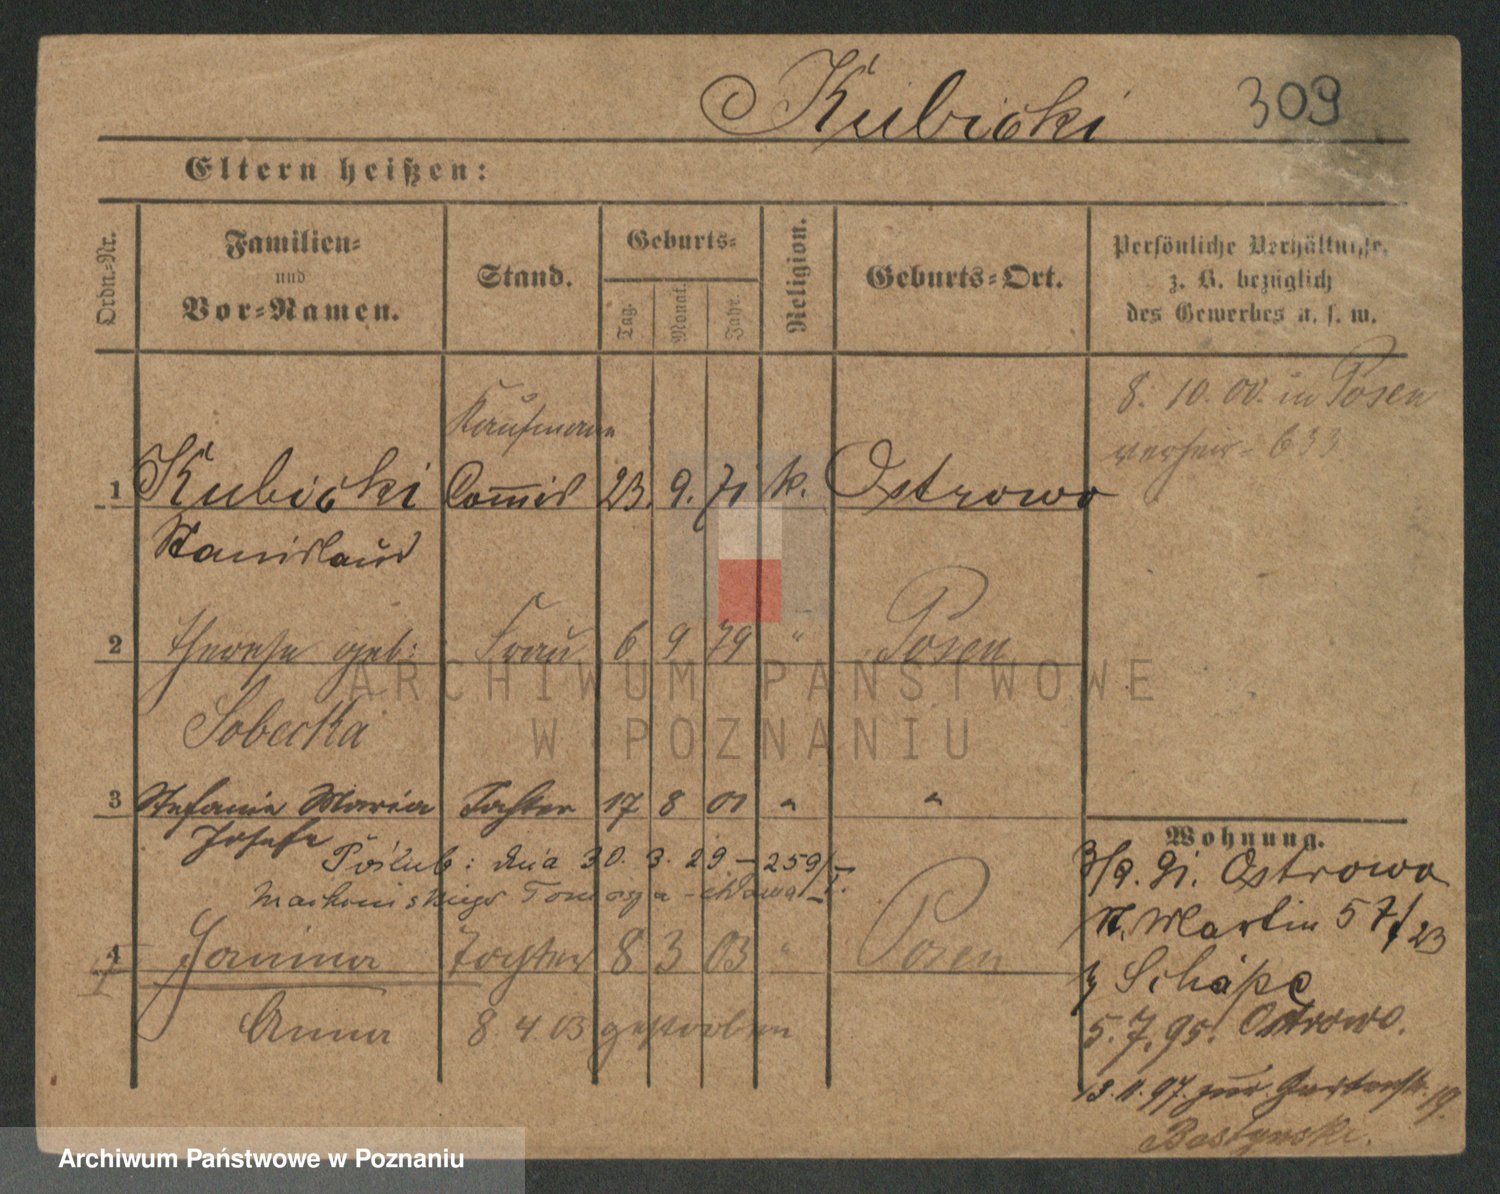 Kubicki 309
Eltern heißen:
Ordn.-Nr.
Familien-
und
Vor-Namen.
Stand.
Geburts-
Tag.
Monat.
Jahr.
Religion.
Geburts-Ort.
Persönliche Verhältnisse,
z. B. bezüglich
des Gewerbes u. s. w.
8. 10. 00. in Posen
verheir. 633
Kaufmann
1 Kubicki Commis 23. 9. 71 k. Ostrowo
Stanislaus
2 Therese geb: Frau 6 9 79 " Posen
Sobecka
3 Stefanie Maria Tochter 17 8 01 " "
Josefa
Poślub: dnia 30. 3. 29 - 259/I.
4 Janina Tochter 8 3 03 " Posen
Anna 8. 4. 03 gestorben
Wohnung.
3/9. 91. Ostrowo
St. Martin 57/23
b/ Schäpe
5. 7. 95. Ostrowo.
13. 11. 97. zur Gartenstr. 19.
ARCHIWUM PAŃSTWOWE
W POZNANIU
Archiwum Państwowe w Poznaniu